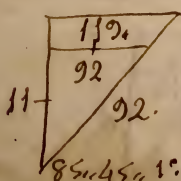 119.
92
11
92.
85,,45,,1°.